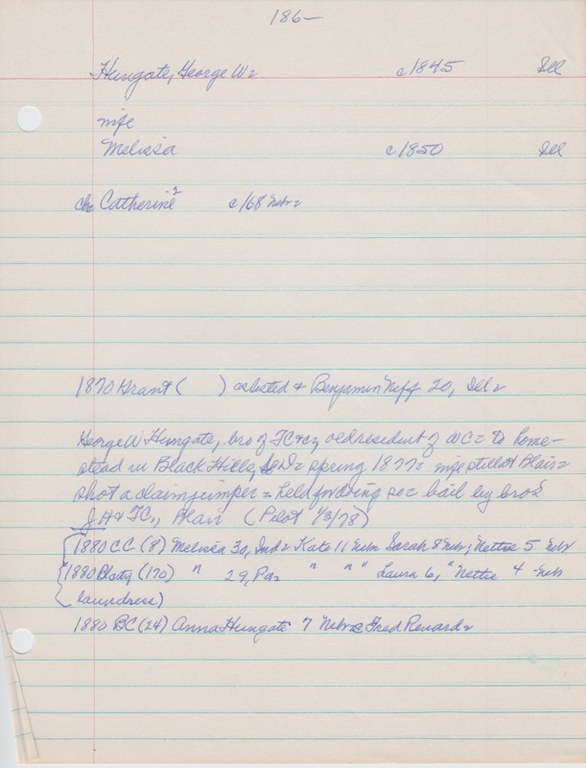 186—
Hungate, George W= c1845 Ill
wife
Melissa c1850 Ill
ch= Catherine² c/68 Nebr=
1870 Grant ( ) & Benjamin Neff 20, Ill=
George W Hungate, bro of TC & c, old resident of WC= to home-
stead in Black Hills, spring 1877= wife still at Blair=
shot a claim jumper= held for dist bail by bros
J H & TC, Blair (Pilot 1/3/78)
1880 CC (8) Melissa 30, Ind= Kate 11 Nebr Sarah 8 Nebr, Nettie 5 Nebr
1880 (170) " 29, Pa= " " " Laura 6, " Nettie 4 Nebr
laundress)
1880 BC (24) Anna Hungate 7 Nebr c Fred Renard=